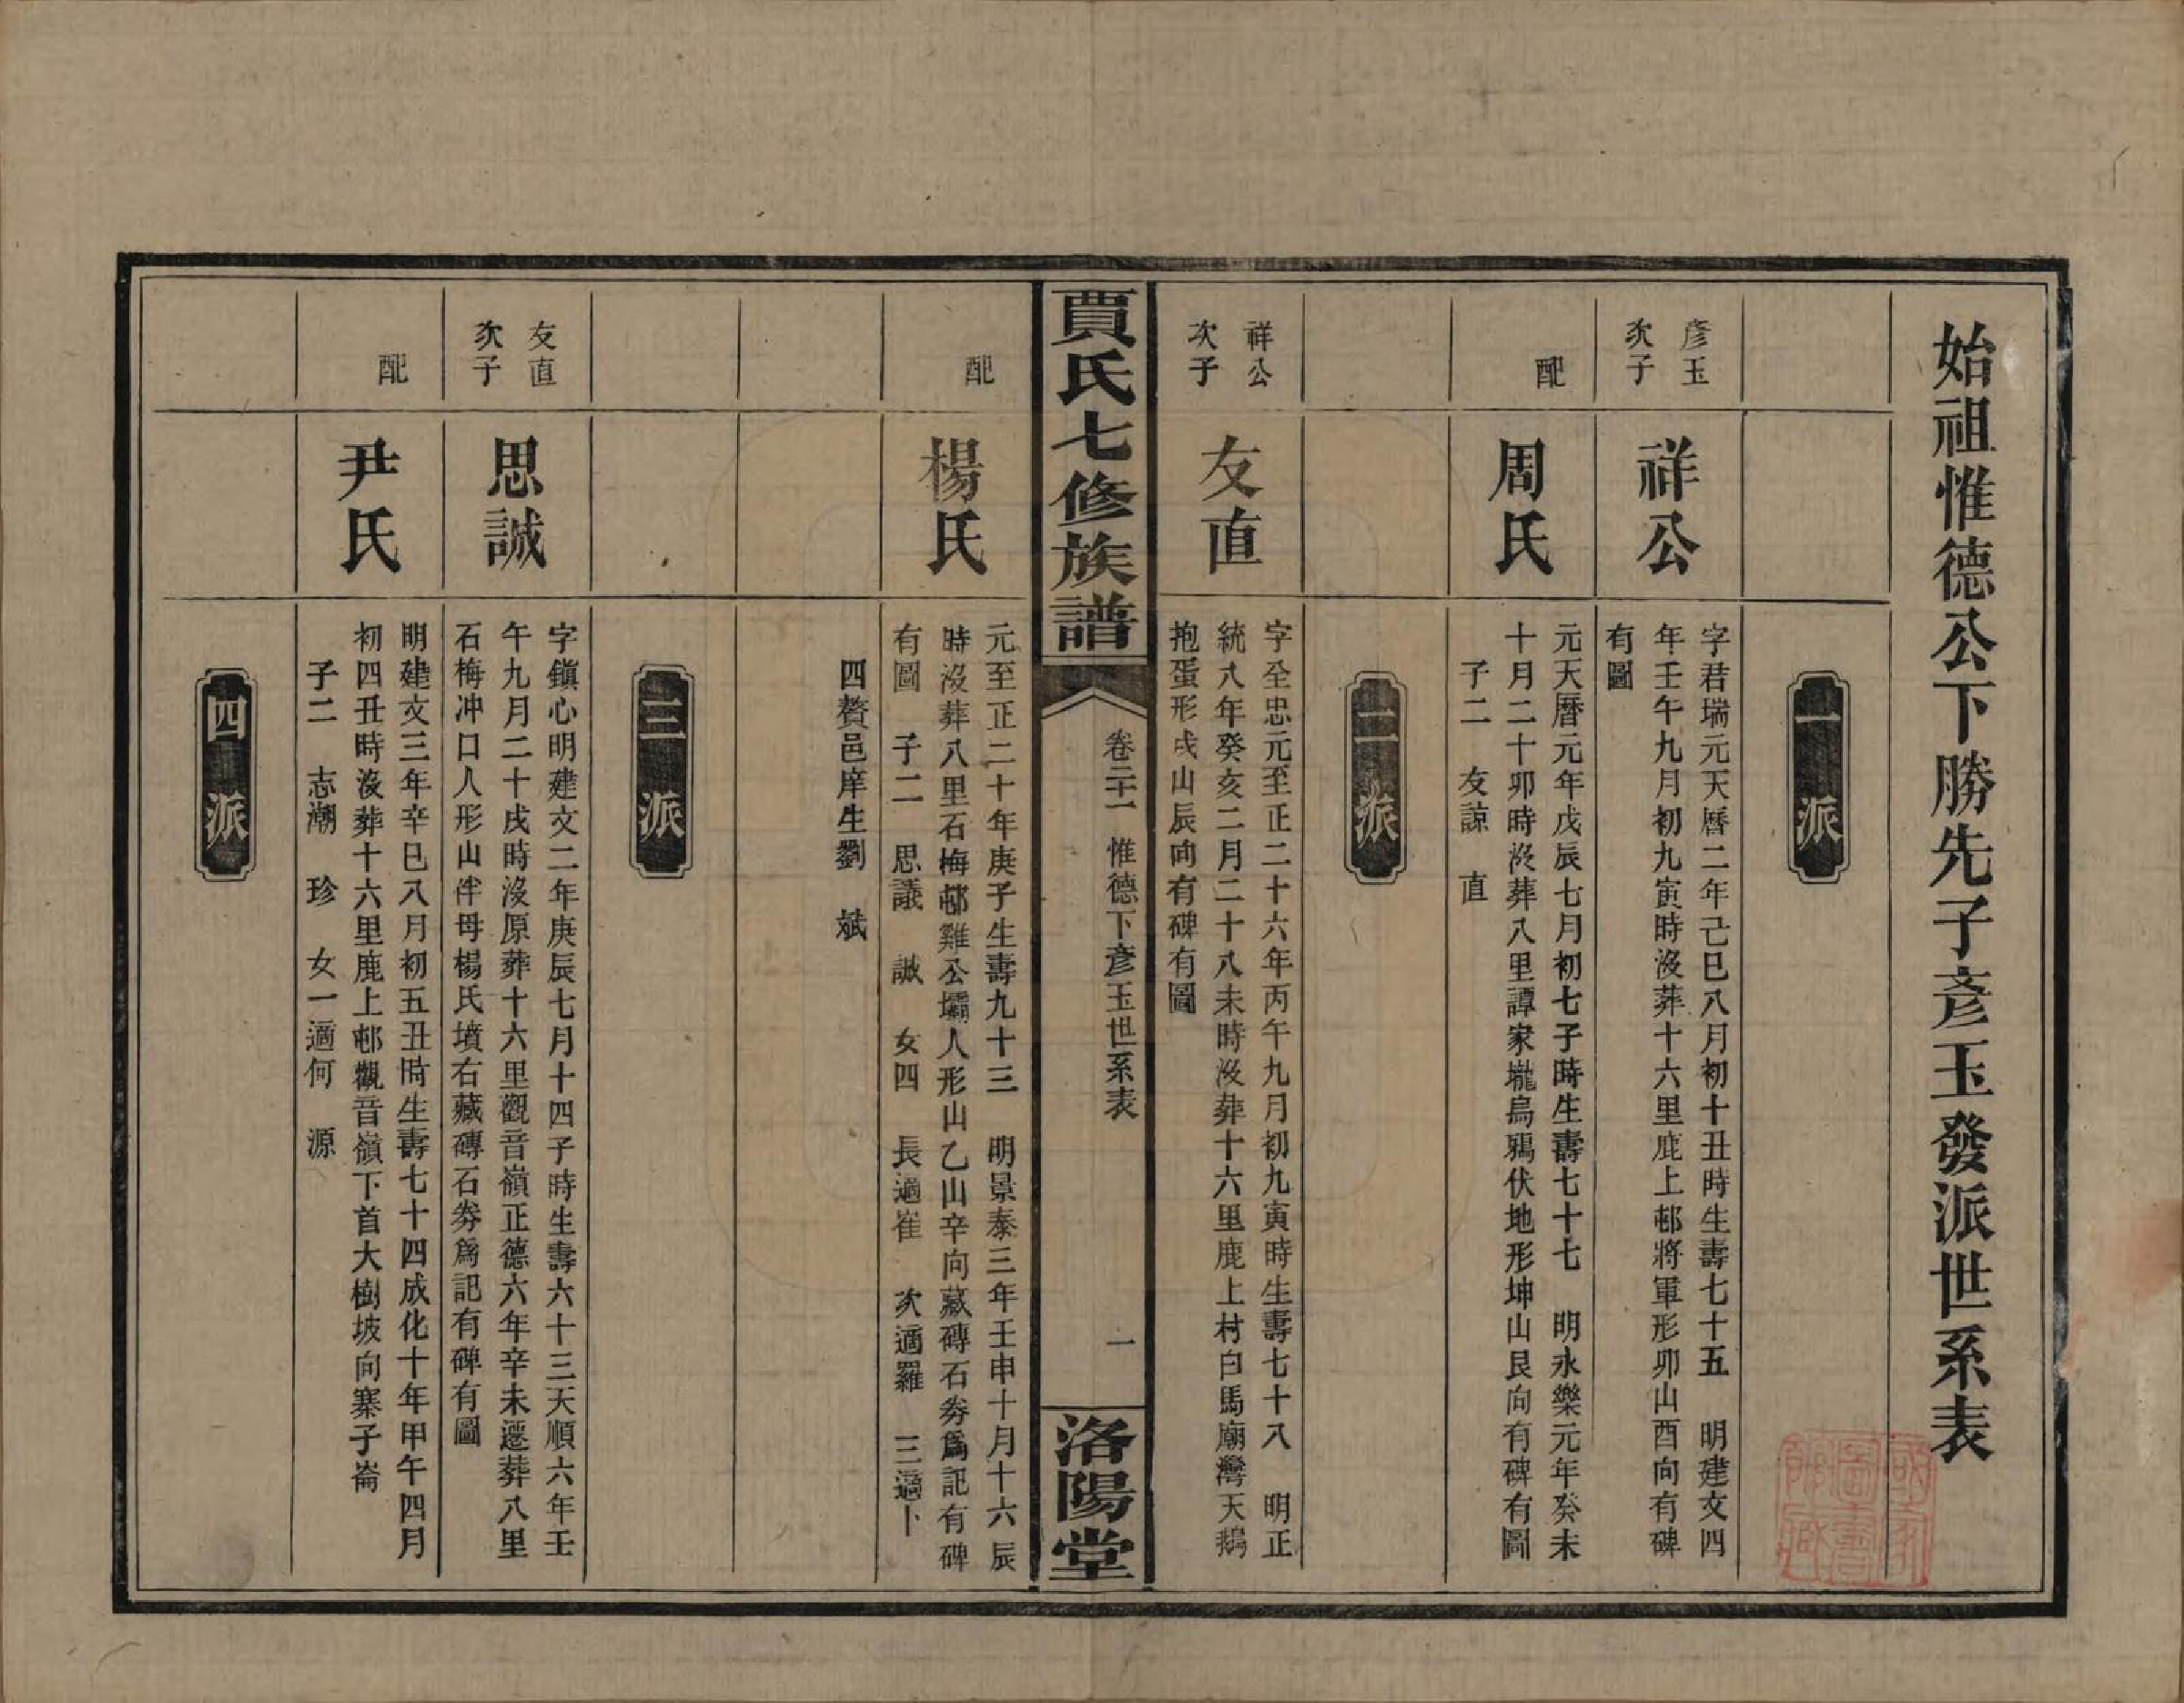 始祖惟德公下勝先子彥玉發派世系表
一派
彥玉
次子
祥公
字君瑞元天曆二年己巳八月初十丑時生壽七十五 明建文四
年壬午九月初九寅時沒葬十六里鹿上邨將軍形卯山酉向有碑
有圖
配
周氏
元天曆元年戊辰七月初七子時生壽七十七 明永樂元年癸未
十月二十卯時沒葬八里譚家壠烏鴉伏地形坤山艮向有碑有圖
子二 友諒 直
二派
祥公
次子
友直
字全忠元至正二十六年丙午九月初九寅時生壽七十八 明正
統八年癸亥二月二十八未時沒葬十六里鹿上村白馬廟灣天鵝
抱蛋形戌山辰向有碑有圖
賈氏七修族譜
卷二十一 惟德下彥玉世系表
一
洛陽堂
配
楊氏
元至正二十年庚子生壽九十三 明景泰三年壬申十月十六辰
時沒葬八里石梅邨雞公壩人形山乙山辛向藏磚石券爲記有碑
有圖 子二 思議 誠 女四 長適崔 次適羅 三適卜
四贅邑庠生劉 斌
三派
友直
次子
思誠
字鎭心明建文二年庚辰七月十四子時生壽六十三天順六年壬
午九月二十戌時沒原葬十六里觀音嶺正德六年辛未遷葬八里
石梅冲口人形山伴母楊氏墳右藏磚石券爲記有碑有圖
配
尹氏
明建文三年辛巳八月初五丑時生壽七十四成化十年甲午四月
初四丑時沒葬十六里鹿上邨觀音嶺下首大樹坡向寨子崙
子二 志潮 珍 女一適何 源
四派